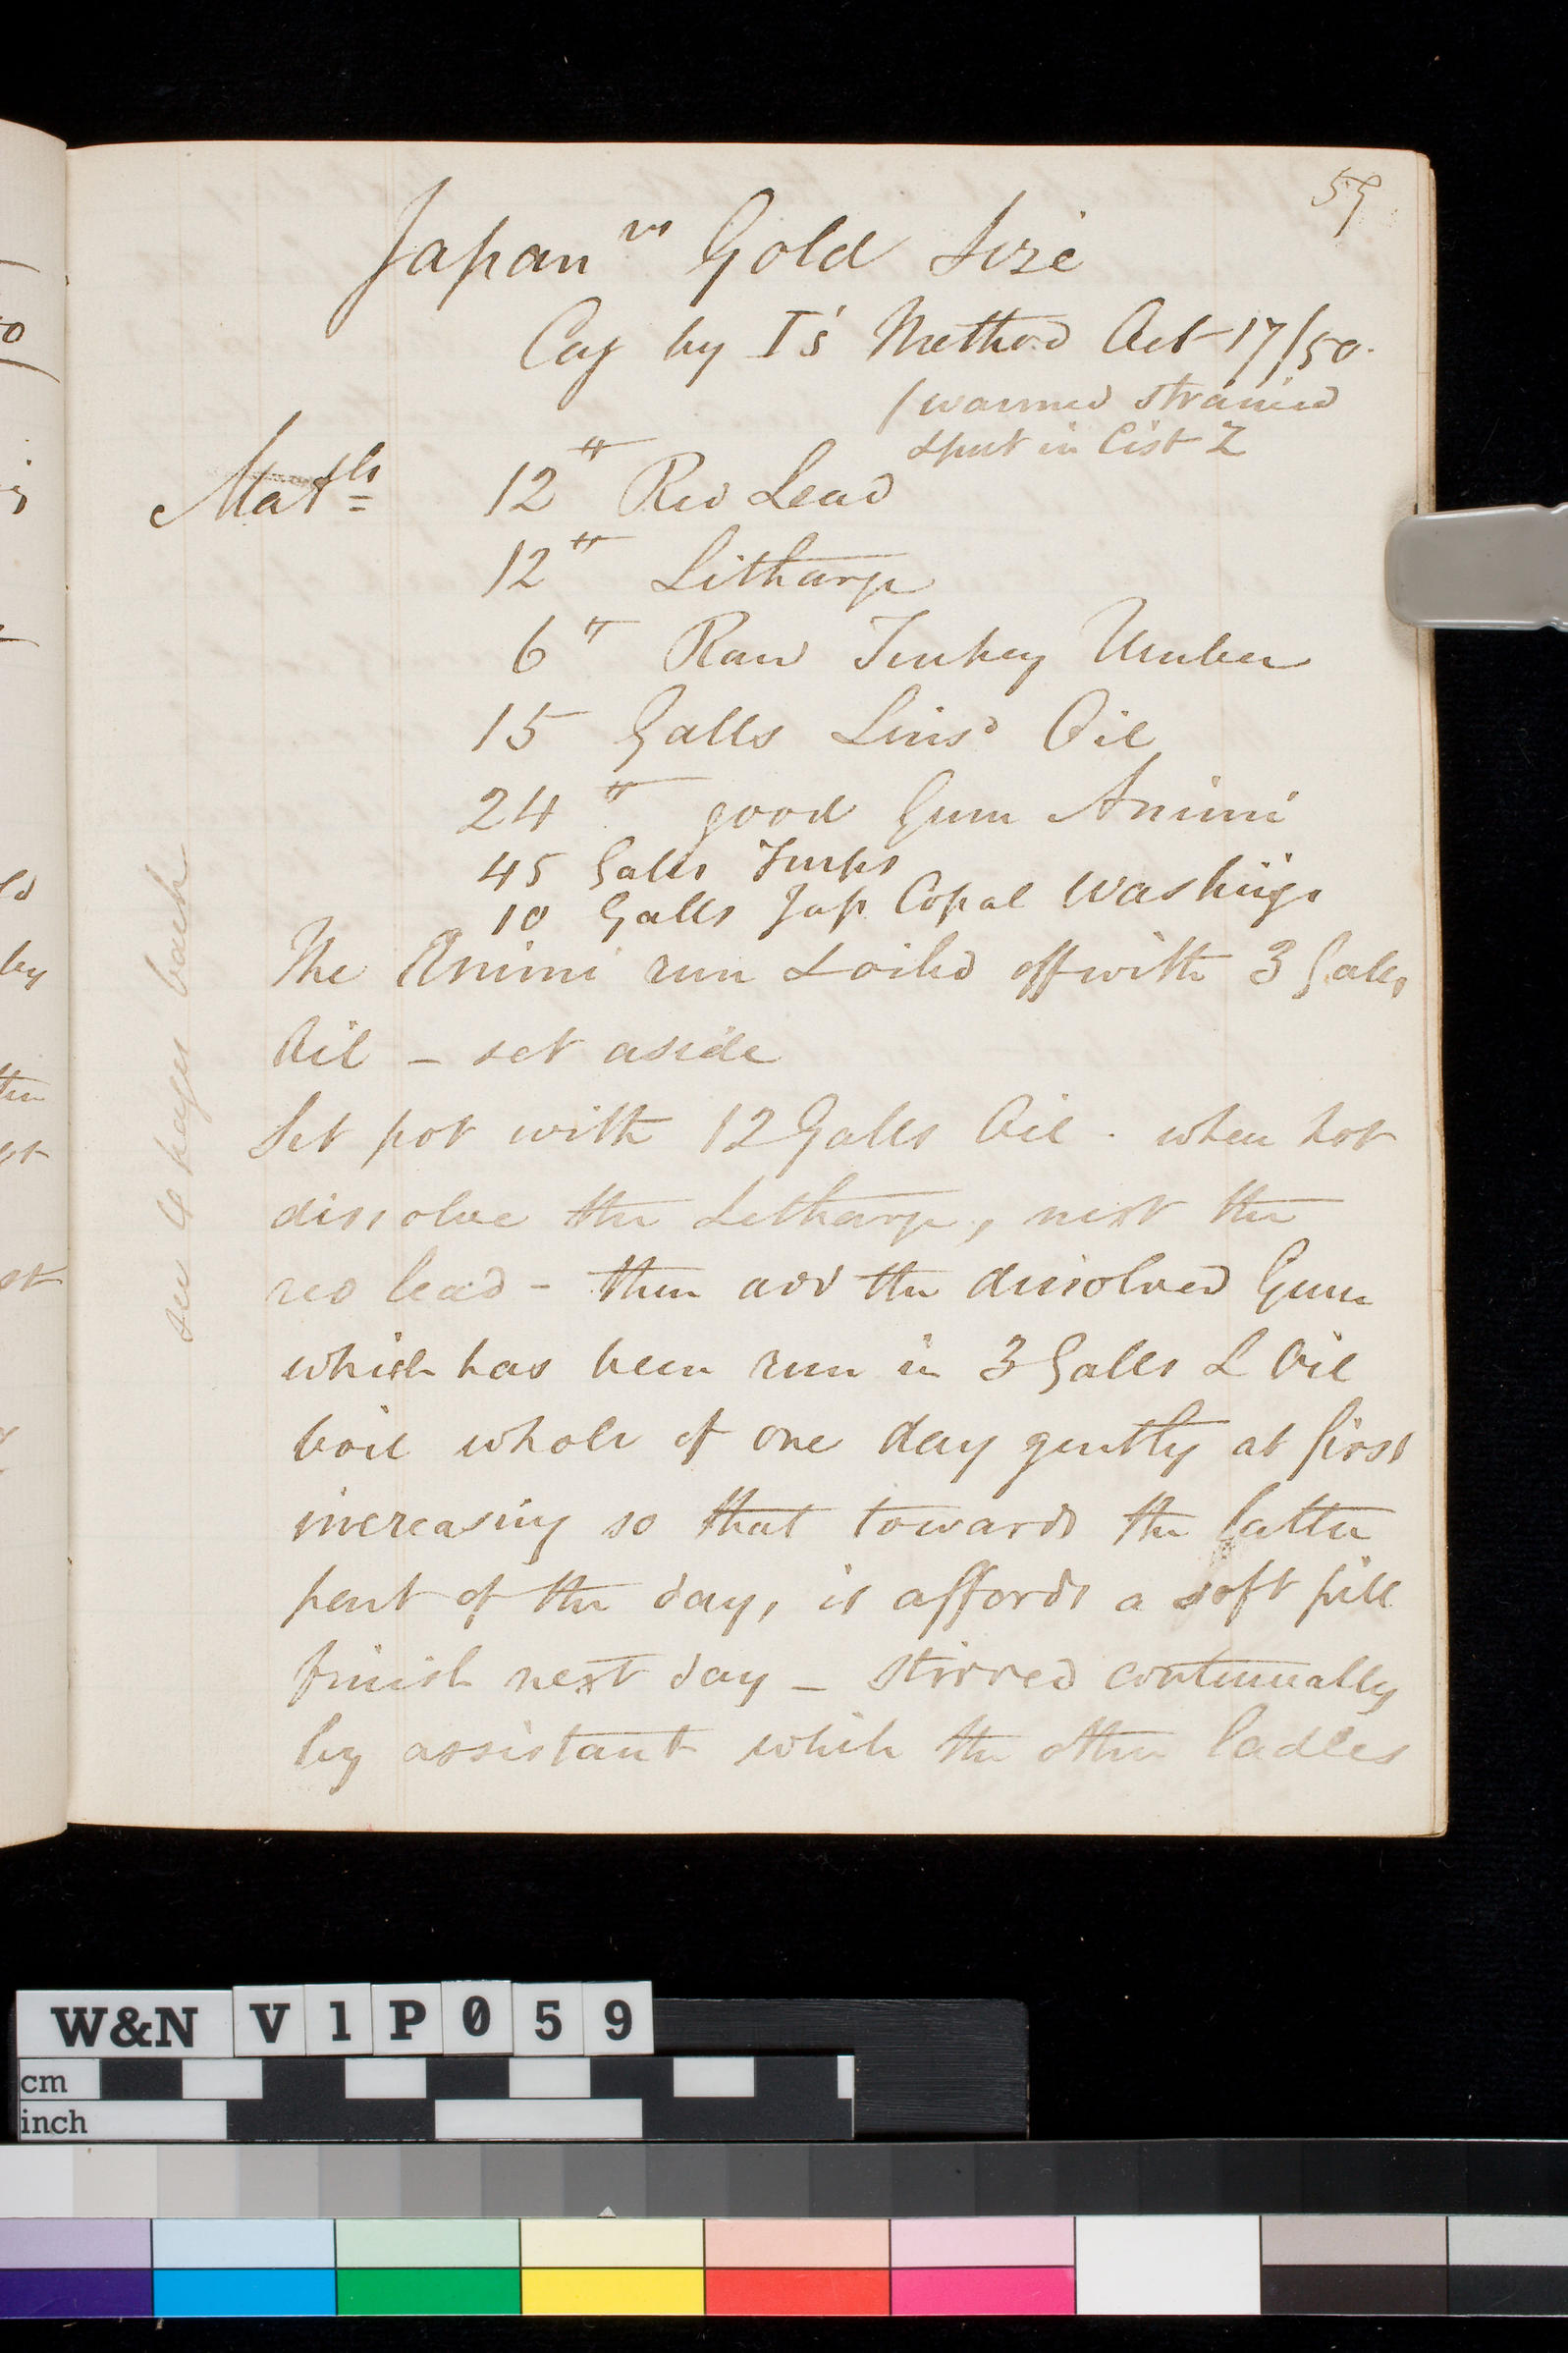 59
Japanrs Gold Size
Cay by T's Method Oct 17/50.
(warmed strained
& put in Cist Z
Matls 12 lb Red Lead
12 lb Litharge
6 lb Raw Turkey Umber
15 Galls Linsd Oil
24 lb good Gum Animi
45 Galls Turps
10 Galls Jap Copal Washings
The Animi run & oiled off with 3 Galls
Oil – set aside
Set pot with 12 Galls Oil . when hot
dissolve the Litharge, next the
red lead – then add the dissolved Gum
which has been run in 3 Galls L Oil
boil whole of one day gently at first
increasing so that towards the latter
part of the day, it affords a soft pill
finish next day – stirred continually
by assistant while the other ladles
see 4 pages back
W&N V1P059
cm
inch